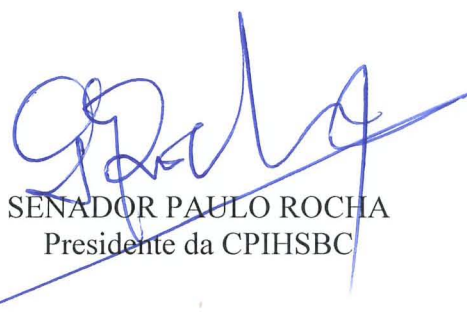 SENADOR PAULO ROCHA
Presidente da CPIHSBC